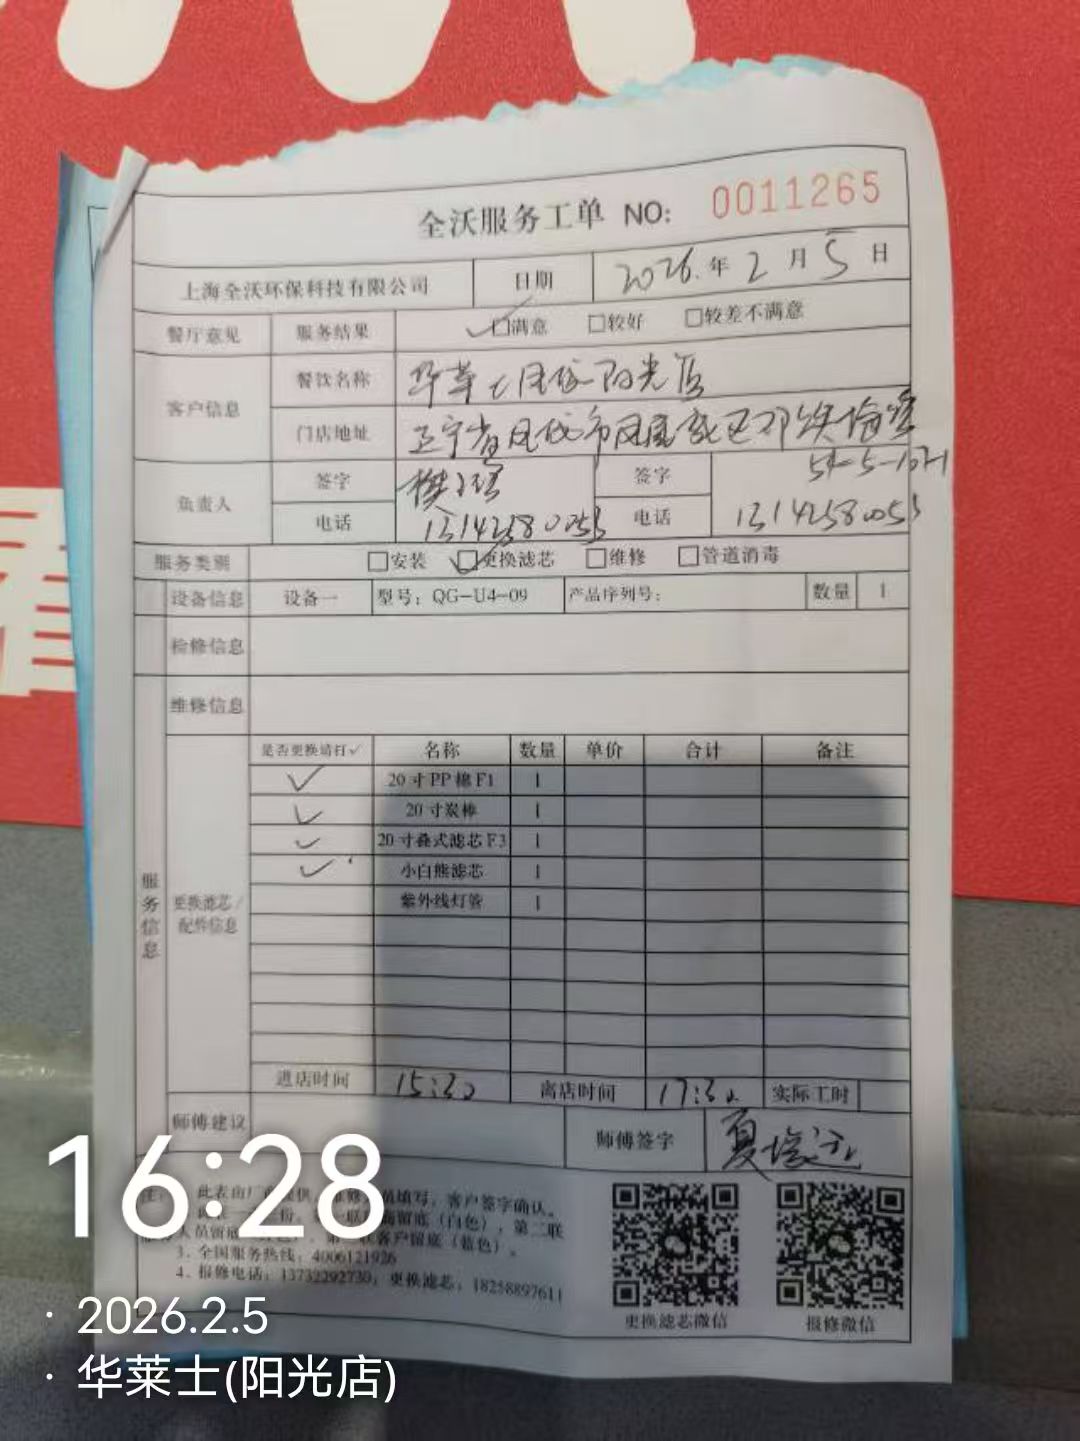 全沃服务工单 NO: 0011265
上海全沃环保科技有限公司 日期 2026.年 2 月 5 日
餐厅意见 服务结果 ✓□满意 □较好 □较差不满意
客户信息 餐饮名称 华莱士凤城阳光店
门店地址 辽宁省凤城市凤凰城区邓铁梅路
54-5-
负责人 签字 签字
电话 13142580055 电话 13142580055
服务类别 □安装 ☑更换滤芯 □维修 □管道消毒
设备信息 设备一 型号：QG-U4-09 产品序列号： 数量 1
检修信息
维修信息
服务信息
更换滤芯/配件信息
是否更换请打✓ 名称 数量 单价 合计 备注
✓ 20寸PP棉F1 1
✓ 20寸炭棒 1
✓ 20寸叠式滤芯F3 1
✓ 小白熊滤芯 1
紫外线灯管 1
进店时间 15:30 离店时间 17:30 实际工时
师傅建议 师傅签字
注： 此表由厂商提供，维修人员填写，客户签字确认。
留底（白色），第二联
人员留底 客户留底（蓝色）。
3．全国服务热线：4006121926
4．报修电话：13732292730；更换滤芯：18258897611
更换滤芯微信 报修微信
16:28
· 2026.2.5
· 华莱士(阳光店)